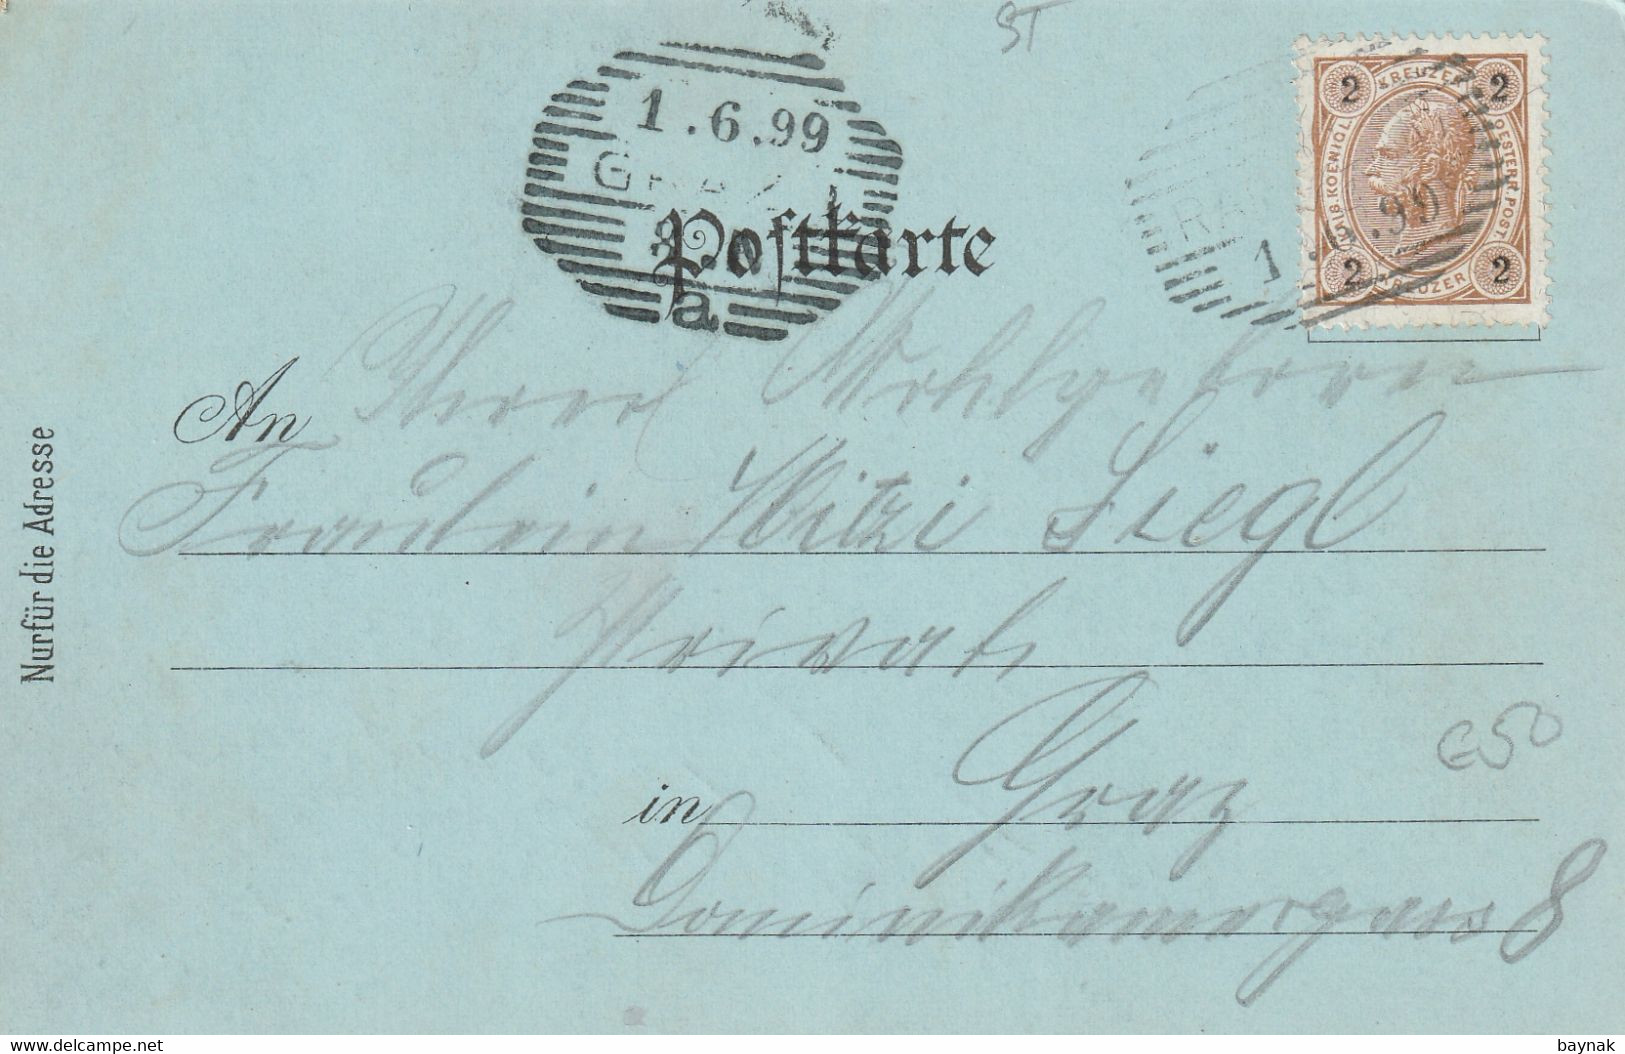 ST
1.6.99
GRAZ
a
KREUZER
2 2
KAIS. KOENIGL. OESTERR. POST
2 2
KREUZER
RA
1.6.99
Postkarte
An Wohlgeboren
Fräulein Mitzi Siegl
Privat
in Graz
Dominikanergasse 8
€50
Nur für die Adresse
delcampe.net
baynak